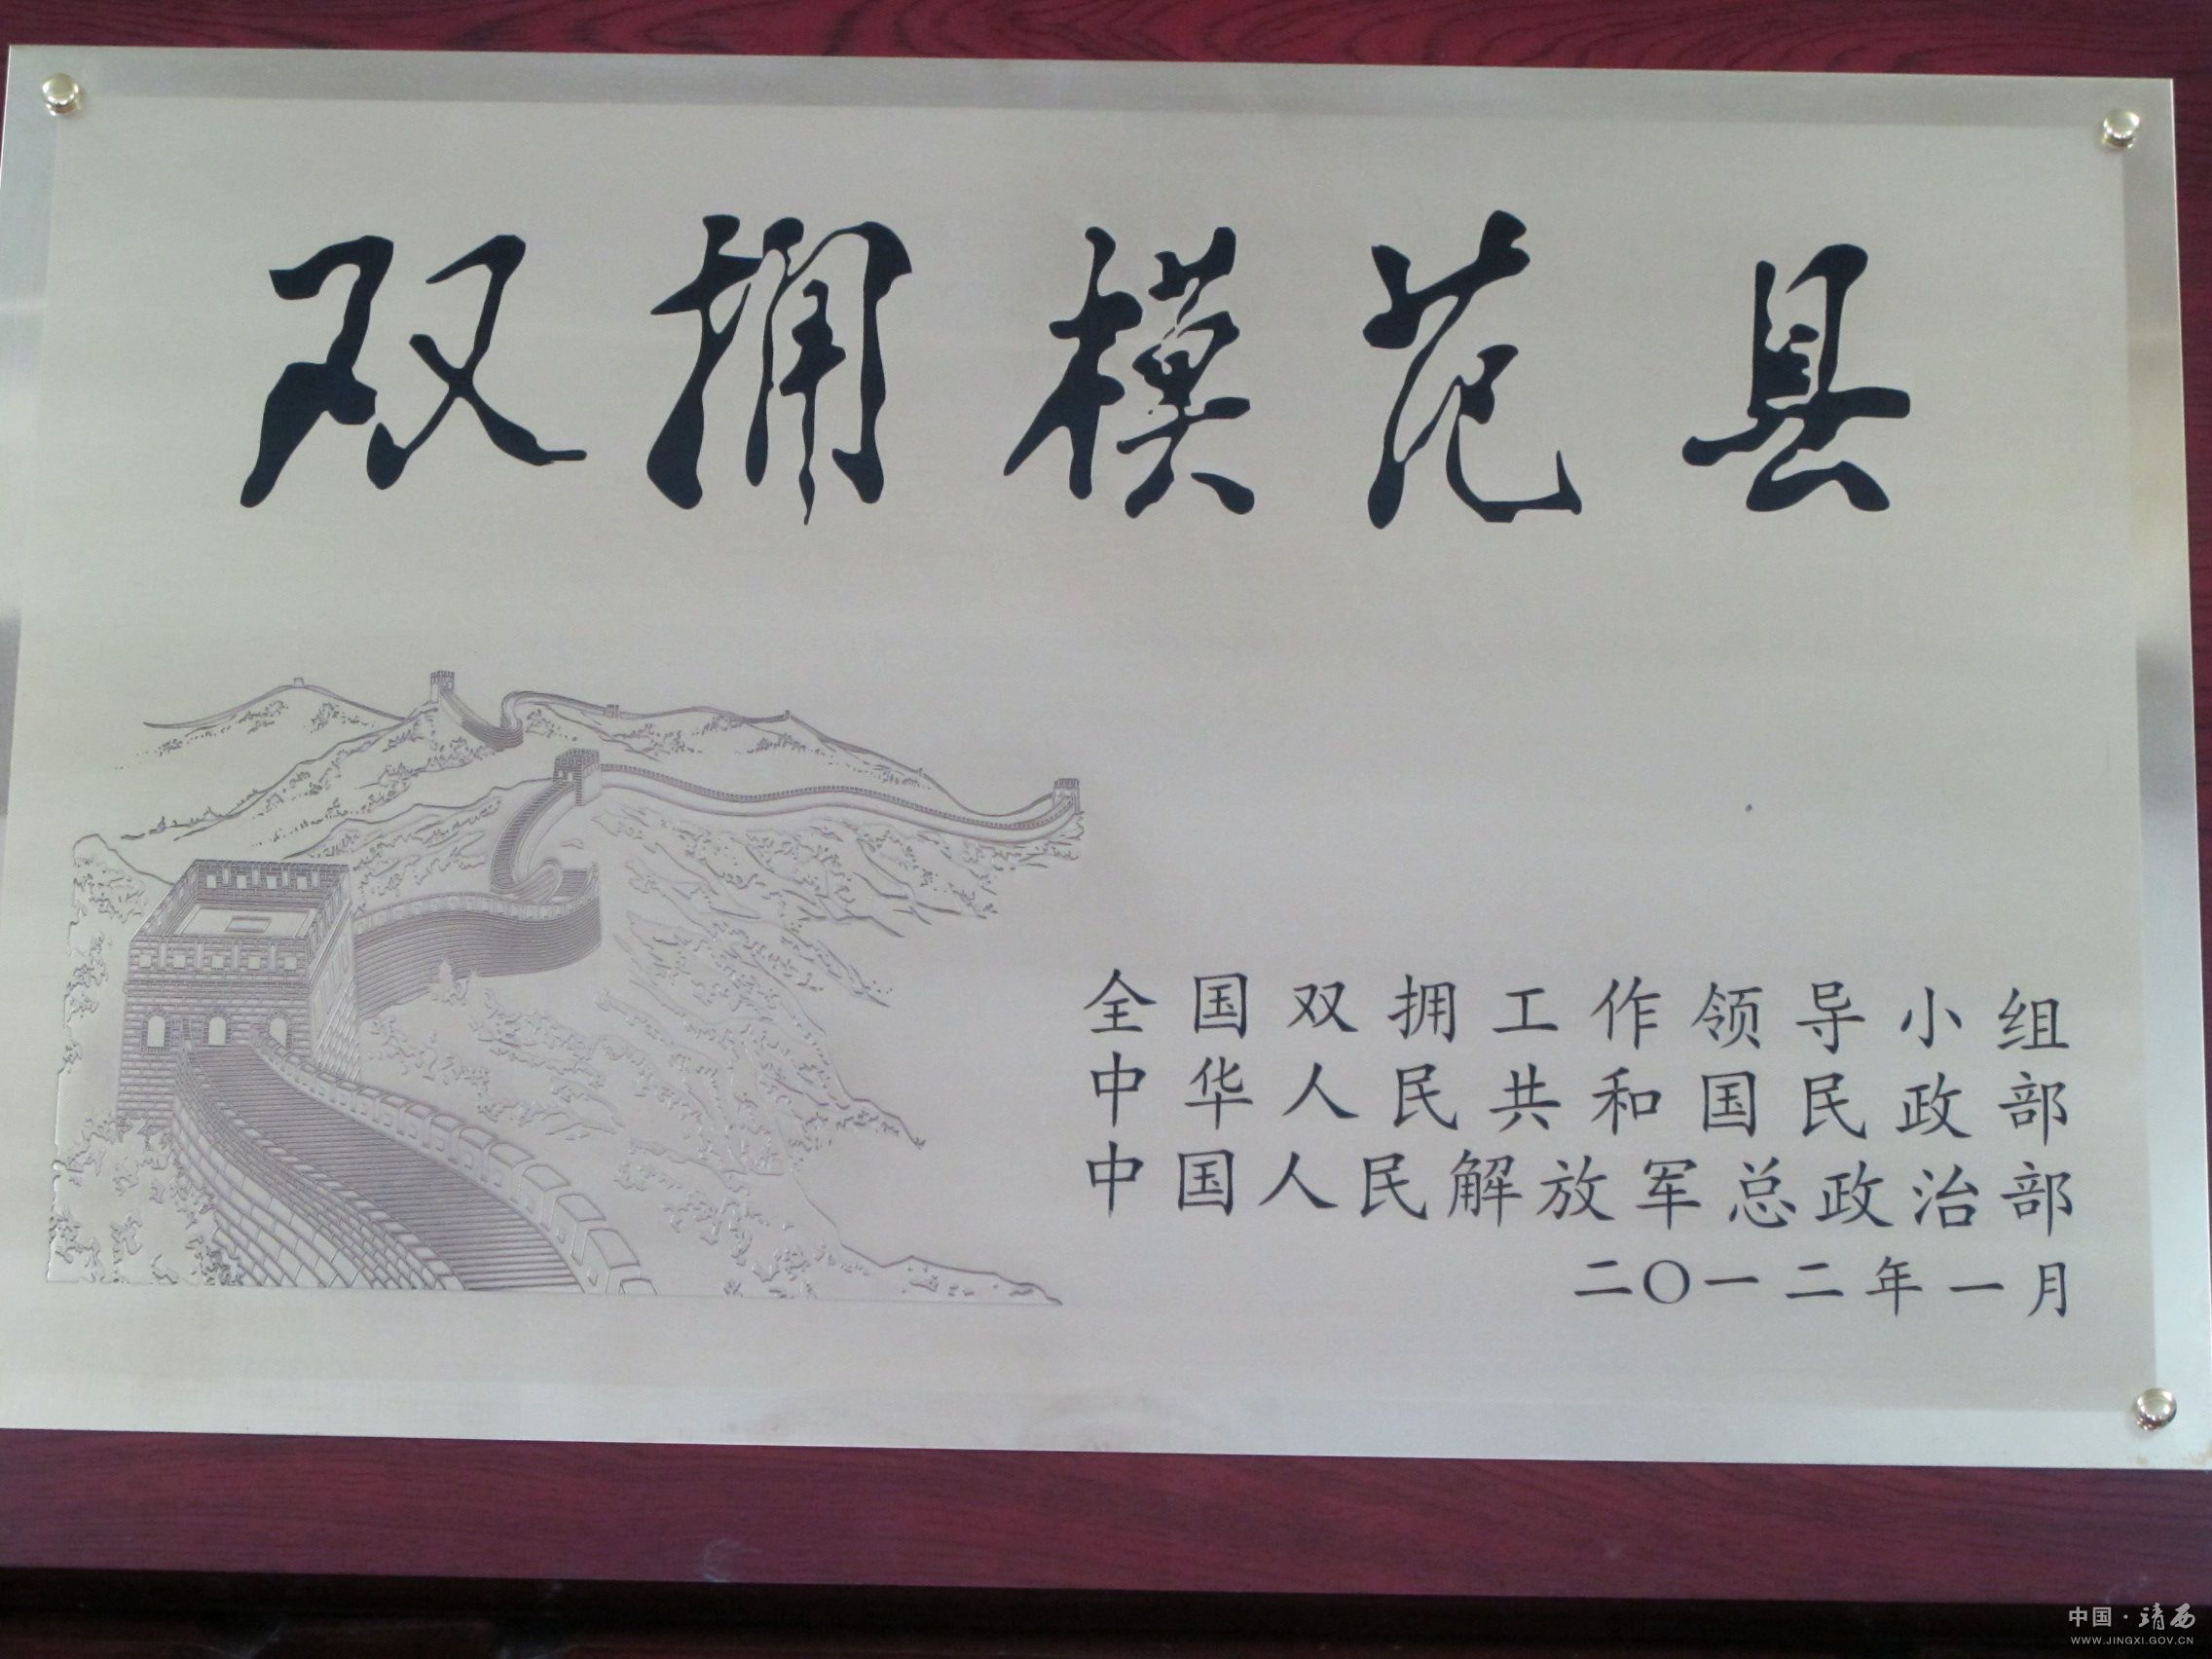 双拥模范县
全国双拥工作领导小组
中华人民共和国民政部
中国人民解放军总政治部
二〇一二年一月
中国·靖西
WWW.JINGXI.GOV.CN